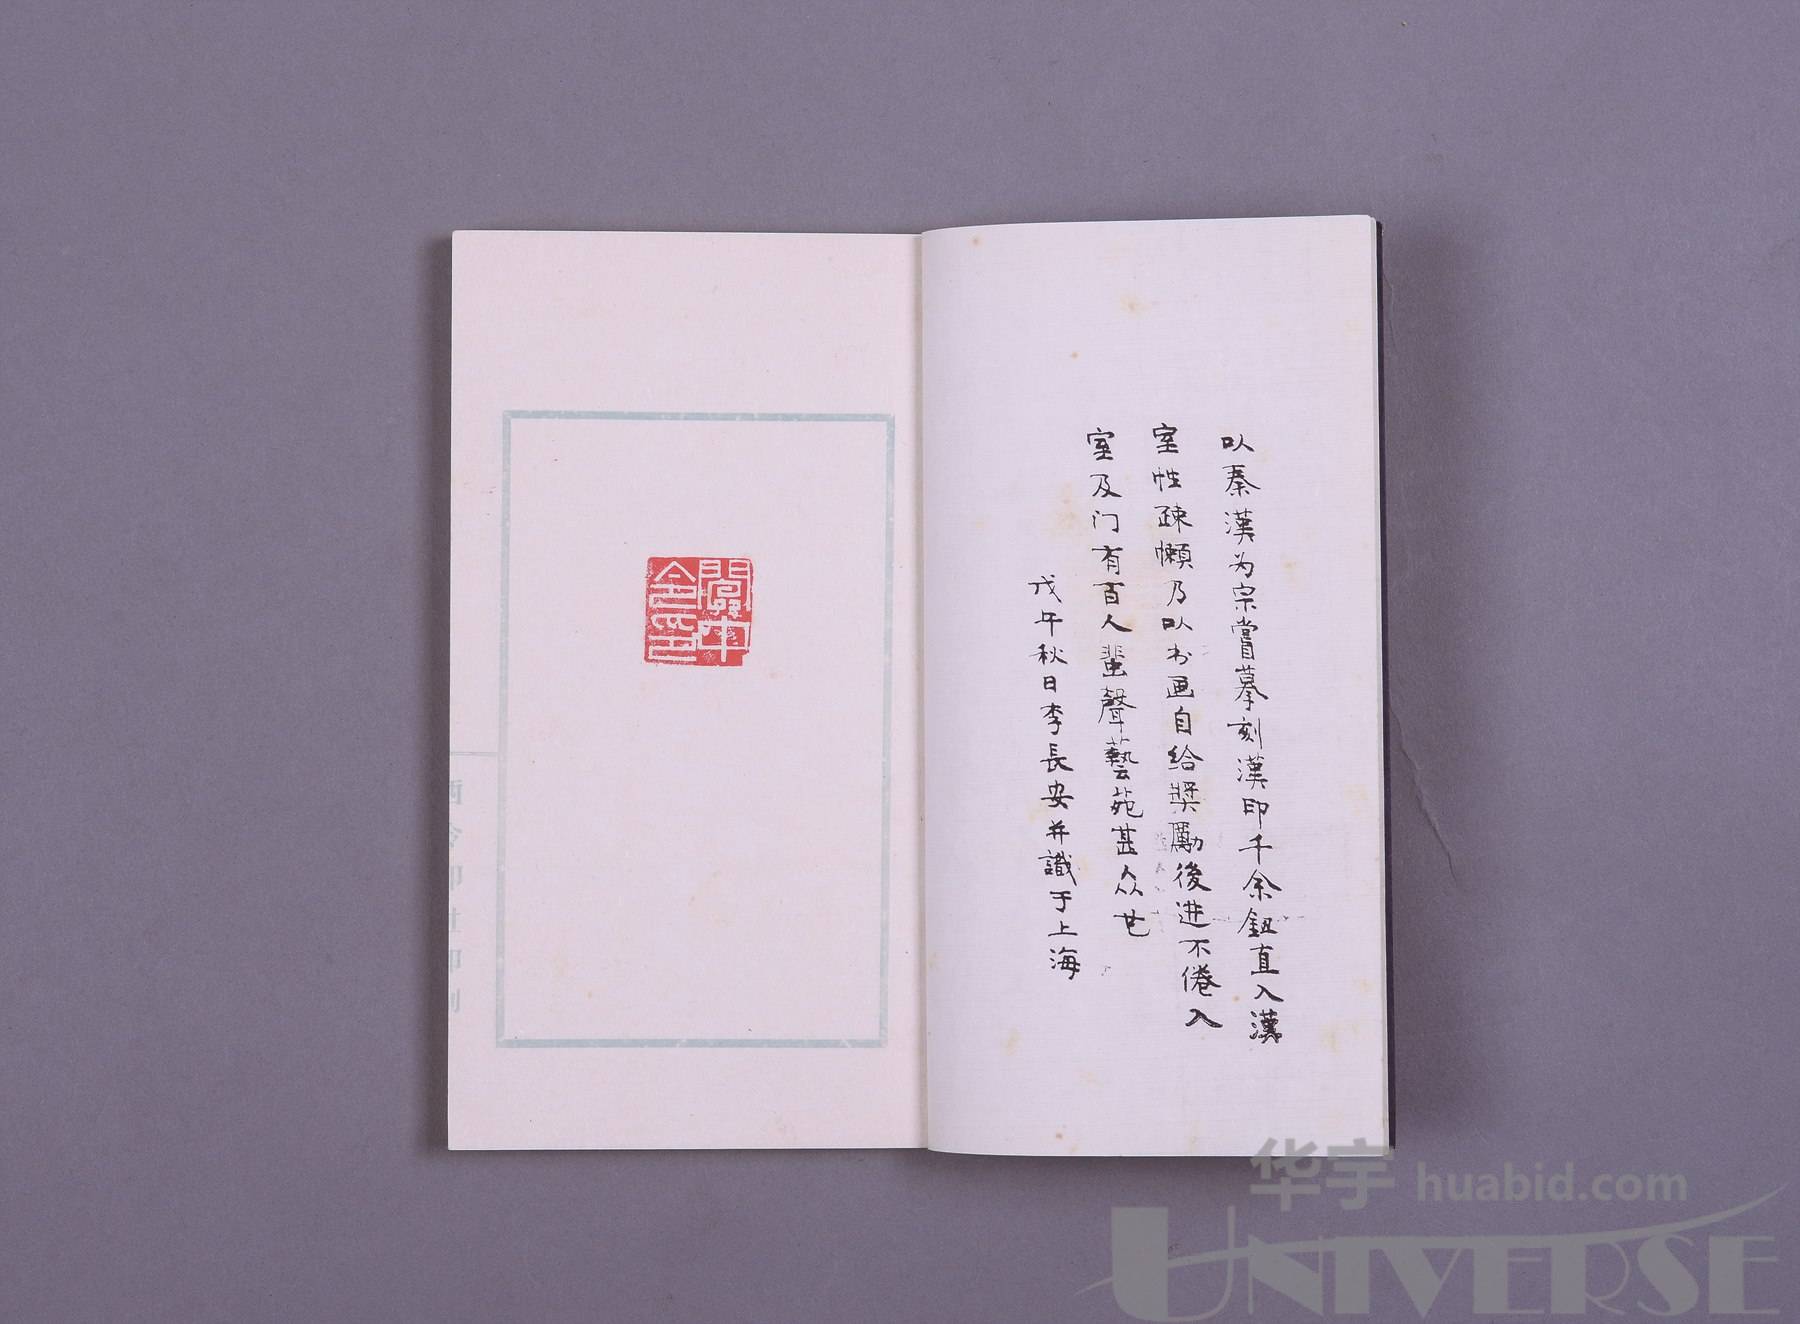 以秦漢为宗嘗摹刻漢印千余鈕直入漢
室性疎懶乃以书画自给奖勵後进不倦入
室及门有百人蜚聲藝苑甚众也
戊午秋日李長安并識于上海
西泠印社印制
华宇 huabid.com
UNIVERSE